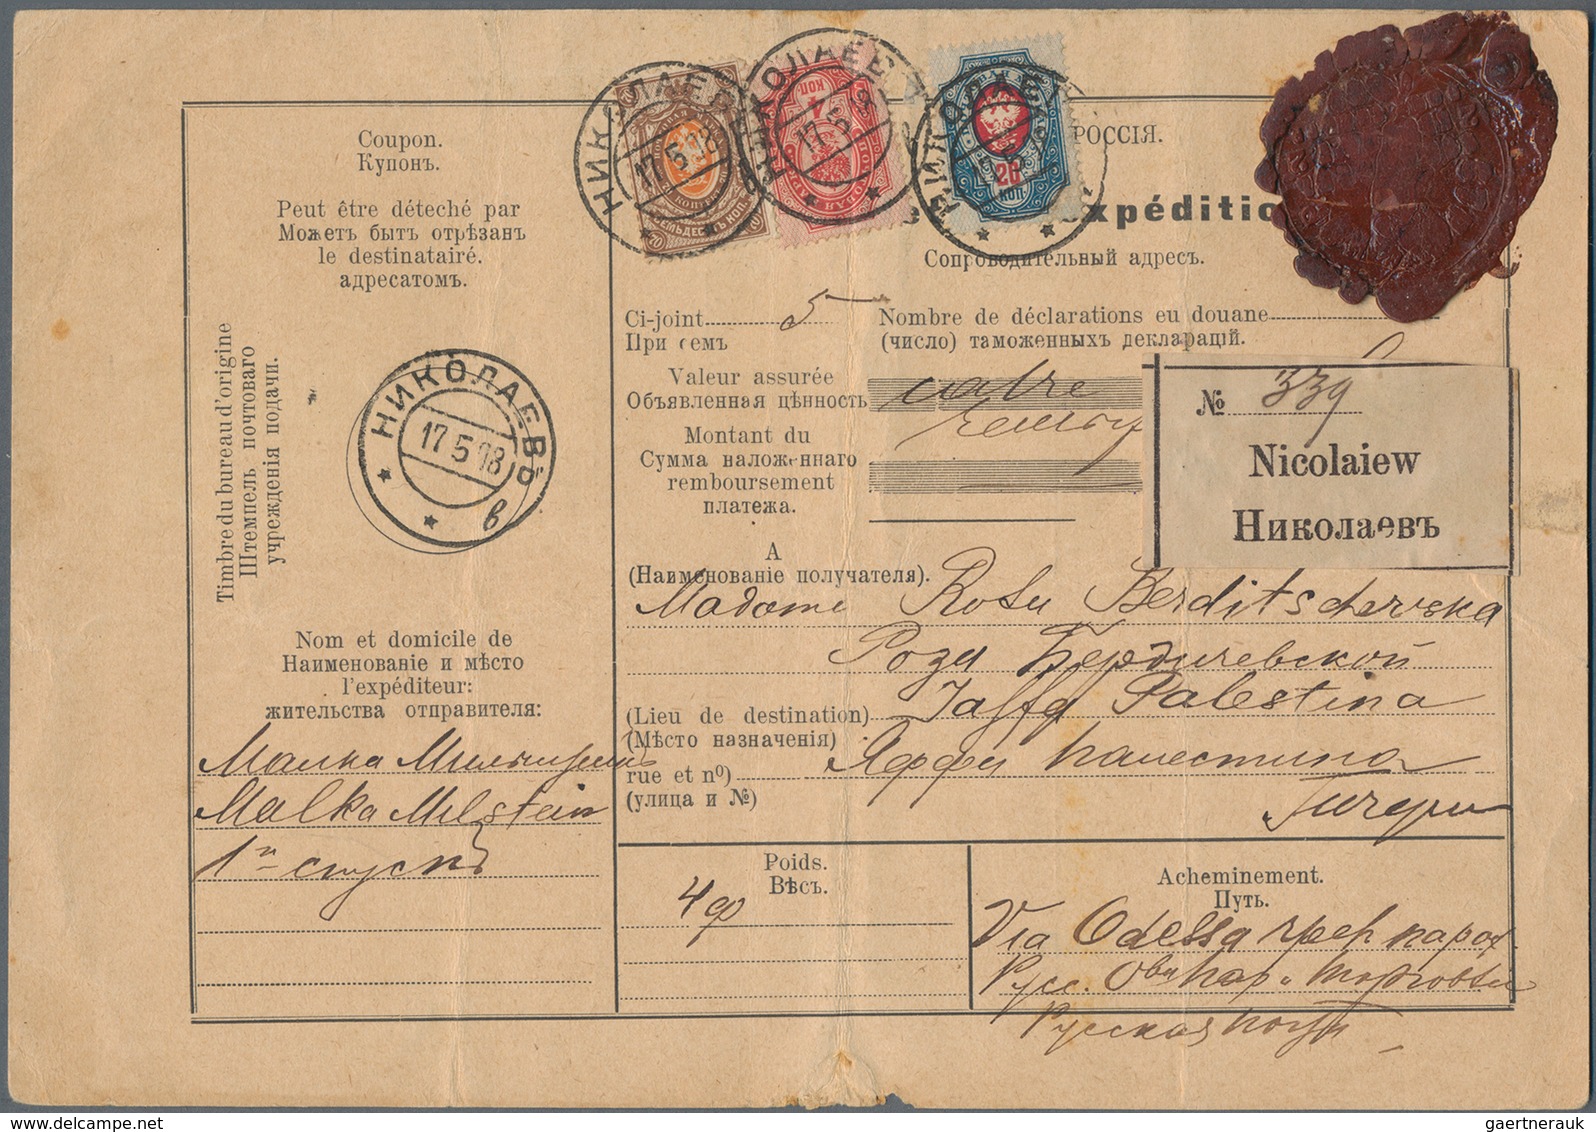 Coupon.
Купонъ.
Peut être déteché par
Можетъ быть отрѣзанъ
le destinatairé.
адресатомъ.
Timbre du bureau d'origine
Штемпель почтоваго
учрежденія подачи.
НИКОЛАЕВЪ
17 5 08
в
Nom et domicile de
Наименованіе и мѣсто
l'expéditeur:
жительства отправителя:
Малка
Malka Milstein
1й спускъ
НИКОЛАЕВ
17.5.08
НИКОЛАЕВ
17.5.08
4 КОП.
20 КОП.
РОССІЯ.
expéditio
Сопроводительный адресъ.
Ci-joint 5 Nombre de déclarations eu douane
При семъ (число) таможенныхъ декларацій.
Valeur assurée
Объявленная цѣнность
Montant du
Сумма наложеннаго
remboursement
платежа.
№ 339
Nicolaiew
Николаевъ
A
(Наименованіе получателя).
Madame Rosa Berditschewska
Роза Бердичевской
(Lieu de destination) Jaffa Palestina
(Мѣсто назначенія)
Яффа Палестина
rue et nº)
(улица и №)
Poids.
Вѣсъ.
4 ф
Acheminement.
Путь.
Via Odessa чрез пароx.
Русс. Общ Пар. и Торговли
Русская почта
gaertnerauk @ delcampe.net